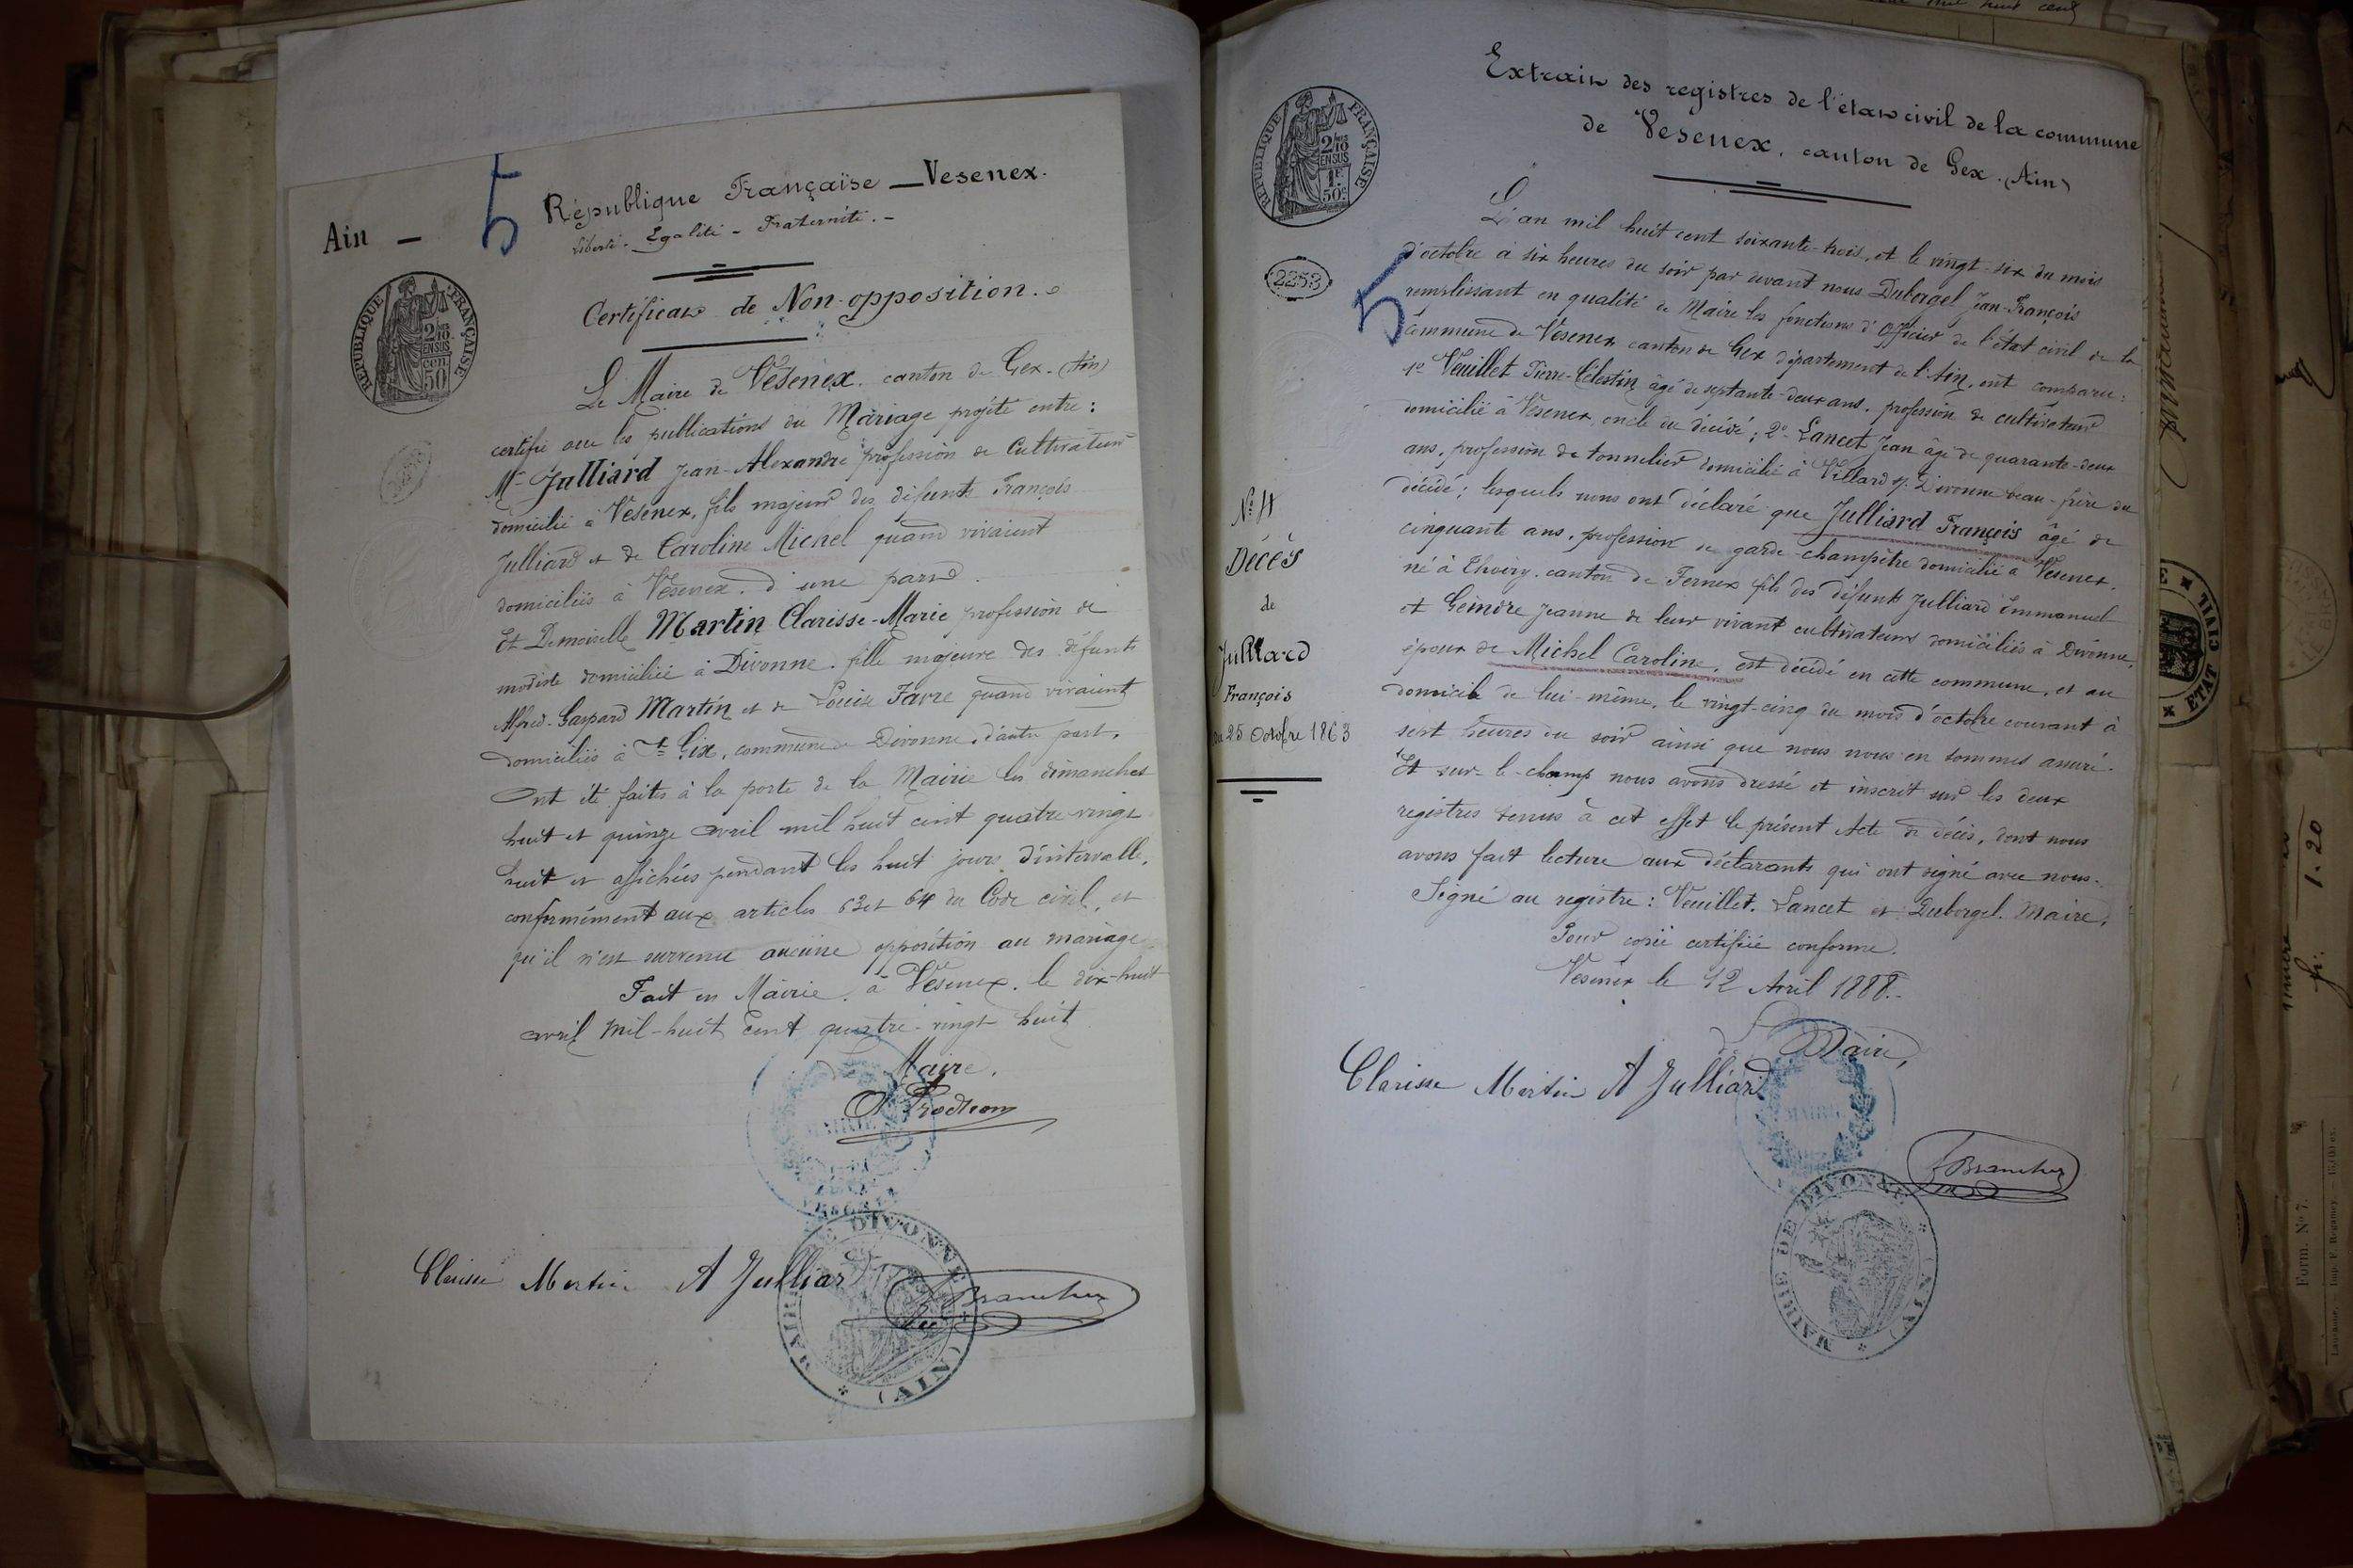 5
Ain — République Française — Vesenex.
Liberté - Egalité - Fraternité. -
RÉPUBLIQUE FRANÇAISE
2/10
EN SUS
cen
50
Certificat de Non-opposition.
Le Maire de Vésenex. canton de Gex. (Ain)
certifie que les publications du Mariage projété entre:
Mr Julliard Jean-Alexandre profession de Cultivateur
domicilié à Vésenex, fils majeur des défunts François
Julliard et de Caroline Michel quand vivaient
domiciliés à Vésenex. d'une part.
Et Demoiselle Martin Clarisse-Marie profession de
modiste domiciliée à Divonne. fille majeure des défunts
Alfred-Gaspard Martin et de Louise Favre quand vivaient
domiciliés à St Gix, commune de Divonne. d'autre part,
Ont été faites à la porte de la Mairie les dimanches
huit et quinze avril mil huit cent quatre vingt
huit et affichées pendant les huit jours d'intervalle,
conformément aux articles 63 et 64 du Code civil, et
qu'il n'est survenu aucune opposition au mariage
Fait en Mairie. à Vésenex. le dix-huit
avril mil-huit cent quatre-vingt huit
Maire,
MAIRIE
Clarisse Martin A Julliard
MAIRIE DE DIVONNE (AIN)
Extrait des registres de l'état civil de la commune
de Vesenex. canton de Gex. (Ain)
RÉPUBLIQUE FRANÇAISE
2/10
EN SUS
1F
50c
2253
5
L'an mil huit cent soixante-trois, et le vingt-six du mois
d'octobre à six heures du soir par devant nous Duborgel Jean-François
remplissant en qualité de Maire les fonctions d'Officier de l'état civil de la
Commune de Vésenex canton de Gex département de l'Ain, ont comparu:
1º Veuillet Pierre-Célestin âgé de septante-deux ans, profession de cultivateur
domicilié à Vesenex, oncle du décédé; 2º Lancet Jean âgé de quarante-deux
ans, profession de tonnelier domicilié à Villard s/ Divonne beau-frère du
décédé; lesquels nous ont déclaré que Julliard François âgé de
cinquante ans, profession de garde-champêtre domicilié à Vésenex,
né à Thoiry, canton de Fernex fils des défunts Julliard Emmanuel
et Geindre Jeanne de leur vivant cultivateurs domiciliés à Divonne,
époux de Michel Caroline, est décédé en cette commune, et au
domicile de lui-même, le vingt-cinq du mois d'octobre courant à
sept heures du soir ainsi que nous nous en sommes assuré.
Et sur-le-champ nous avons dressé et inscrit sur les deux
registres tenus à cet effet le présent Acte de décès, dont nous
avons fait lecture aux déclarants qui ont signé avec nous.
Signé au registre: Veuillet. Lancet et Duborgel. Maire,
Pour copie certifiée conforme.
Vésenex le 12 Avril 1888.
Le Maire,
Nº 4
Décès
de
Julliard
François
du 25 Octobre 1863
Clarisse Martin A Julliard
MAIRIE
MAIRIE DE DIVONNE (AIN)
ETAT CIVIL
fr. 1.20
Form. Nº 7.